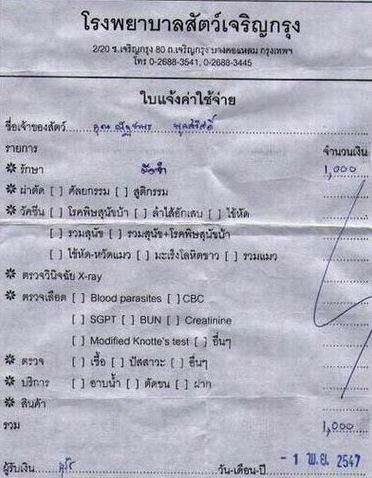 โรงพยาบาลสัตว์เจริญกรุง
2/20 ซ.เจริญกรุง 80 ถ.เจริญกรุง บางคอแหลม กรุงเทพฯ
โทร 0-2688-3541, 0-2688-3445
ใบแจ้งค่าใช้จ่าย
ชื่อเจ้าของสัตว์ คุณ
รายการ จำนวนเงิน
* รักษา 1,000
* ผ่าตัด [ ] ศัลยกรรม [ ] สูติกรรม
* วัคซีน [ ] โรคพิษสุนัขบ้า [ ] ลำไส้อักเสบ [ ] ไข้หัด
[ ] รวมสุนัข [ ] รวมสุนัข+โรคพิษสุนัขบ้า
[ ] ไข้หัด-หวัดแมว [ ] มะเร็งโลหิตขาว [ ] รวมแมว
* ตรวจวินิจฉัย X-ray
* ตรวจเลือด [ ] Blood parasites [ ] CBC
[ ] SGPT [ ] BUN [ ] Creatinine
[ ] Modified Knotte's test [ ] อื่นๆ
* ตรวจ [ ] เชื้อ [ ] ปัสสาวะ [ ] อื่นๆ
* บริการ [ ] อาบน้ำ [ ] ตัดขน [ ] ฝาก
* สินค้า
รวม 1,000
ผู้รับเงิน วัน-เดือน-ปี - 1 พ.ย. 2547